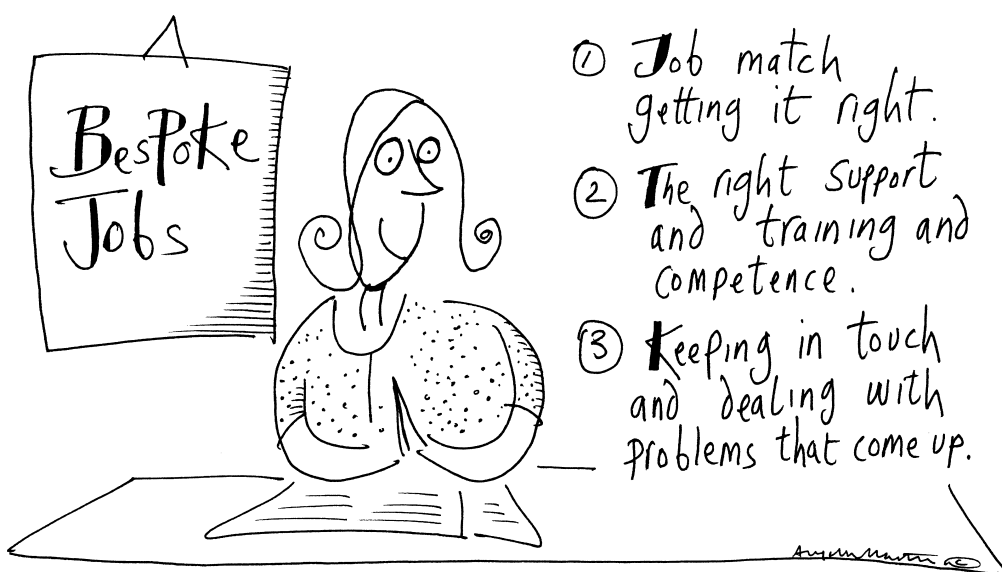 BesPoke
Jobs
1 Job match
getting it right.
2 The right support
and training and
competence.
3 Keeping in touch
and dealing with
problems that come up.